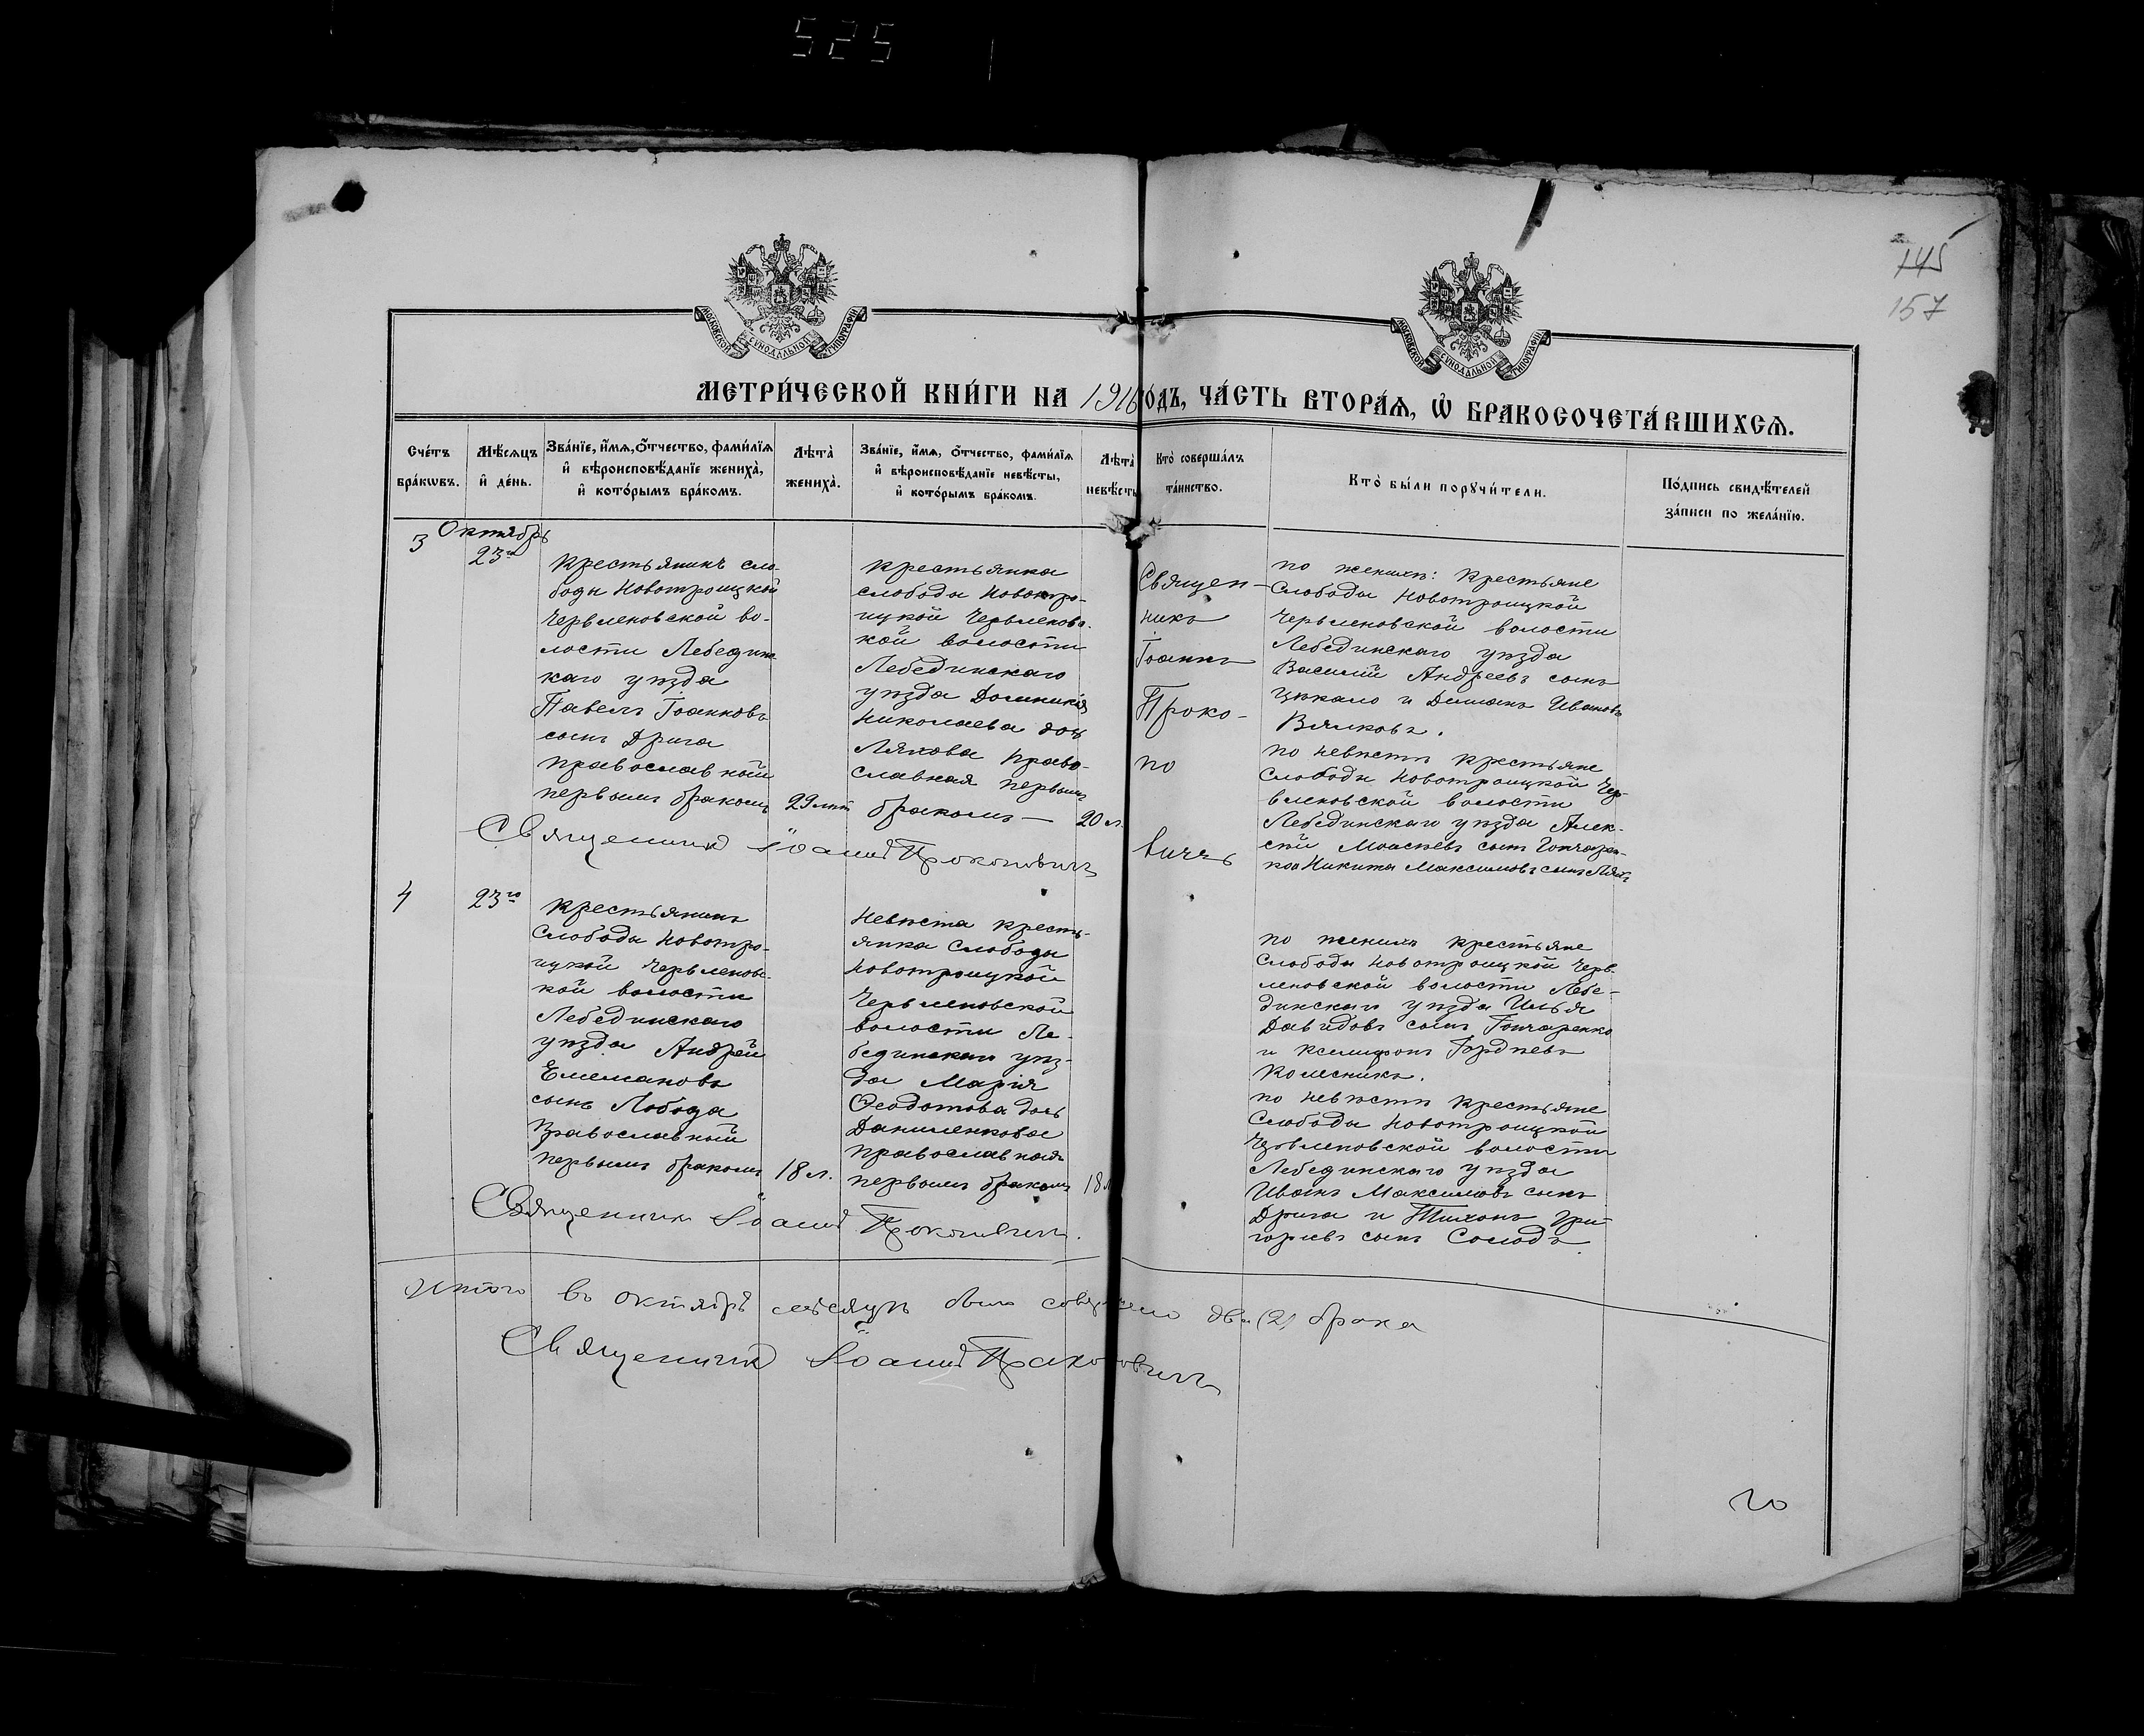 525
145
157
МОСКОВСКОЙ СУНОДАЛЬНОЙ ТИПОГРАФІИ
МОСКОВСКОЙ СУНОДАЛЬНОЙ ТИПОГРАФІИ
МЕТРИ́ЧЕСКОЙ КНИ́ГИ НА 1916 ГОДЪ, ЧА́СТЬ ВТОРА́Ѧ, Ѡ҆ БРАКОСОЧЕТА́ВШИХСѦ.
Сче́тъ бра́кѡвъ.
Мѣ́сѧцъ и҆ де́нь.
Зва́нїе, и҆́мѧ, ѻ҆́тчество, фами́лїѧ
и҆ вѣроисповѣ́данїе жениха̀,
и҆ кото́рымъ бра́комъ.
Лѣ́та̀ жениха̀.
Зва́нїе, и҆́мѧ, ѻ҆́тчество, фами́лїѧ
и҆ вѣроисповѣ́данїе невѣ́сты,
и҆ кото́рымъ бра́комъ.
Лѣ́та̀ невѣ́сты
Кто̀ соверша́лъ та́инство.
Кто̀ бы́ли порꙋчи́тели.
По́дпись свидѣ́телей
за́писи по жела́нїю.
3
Октябрь
23го
Крестьянинъ сло-
боды Новотроицкой
Червленовской во-
лости Лебединс
каго уѣзда
Павелъ Іоанновъ
сынъ Дрига
православный
первымъ бракомъ
29 лѣт
крестьянка
слободы Новотро-
ицкой Червленовс-
кой волости
Лебединскаго
уѣзда Домникія
Николаева дочь
Ляхова право-
славная первымъ
бракомъ —
20 л.
Священ-
никъ
Іоаннъ
Проко-
по
вичъ
по женихѣ: Крестьяне
Слободы Новотроицкой
Червленовской волости
Лебединскаго уѣзда
Василій Андреевъ сынъ
Цюкало и Даміанъ Ивановъ
Вялковъ.
по невѣстѣ крестьяне
Слободы Новотроицкой Чер-
вленовской волости
Лебединскаго уѣзда Алек-
сѣй Моисѣевъ сынъ Гончарен-
ко и Никита Максимовъ сынъ Ляхъ
Священникъ Іоаннъ Прокоповичъ
4
23го
Крестьянинъ
Слободы Новотро-
ицкой Червленовс-
кой волости
Лебединскаго
уѣзда Андрей
Емеліановъ
сынъ Лобода
Православный
первымъ бракомъ
18 л.
Невѣста кресть-
янка Слободы
Новотроицкой
Червленовской
волости Ле-
бединскаго уѣз-
да Марія
Ѳеодотова дочь
Даниленкова
православная
первымъ бракомъ
18 л
по женихѣ крестьяне
Слободы Новотроицкой Черв-
леновской волости Лебе-
динскаго уѣзда Илья
Давидовъ сынъ Гончаренко
и Ксенофонъ Гордѣевъ
Колесникъ.
по невѣстѣ Крестьяне
Слободы Новотроицкой
Червленовской волости
Лебединскаго уѣзда
Иванъ Максимовъ сынъ
Дрига и Тихонъ Гри-
горьевъ сынъ Солодъ
Священникъ Іоаннъ Прокоповичъ.
Итого въ октябрѣ мѣсяцѣ было совершено два (2) брака
Священникъ Іоаннъ Прокоповичъ